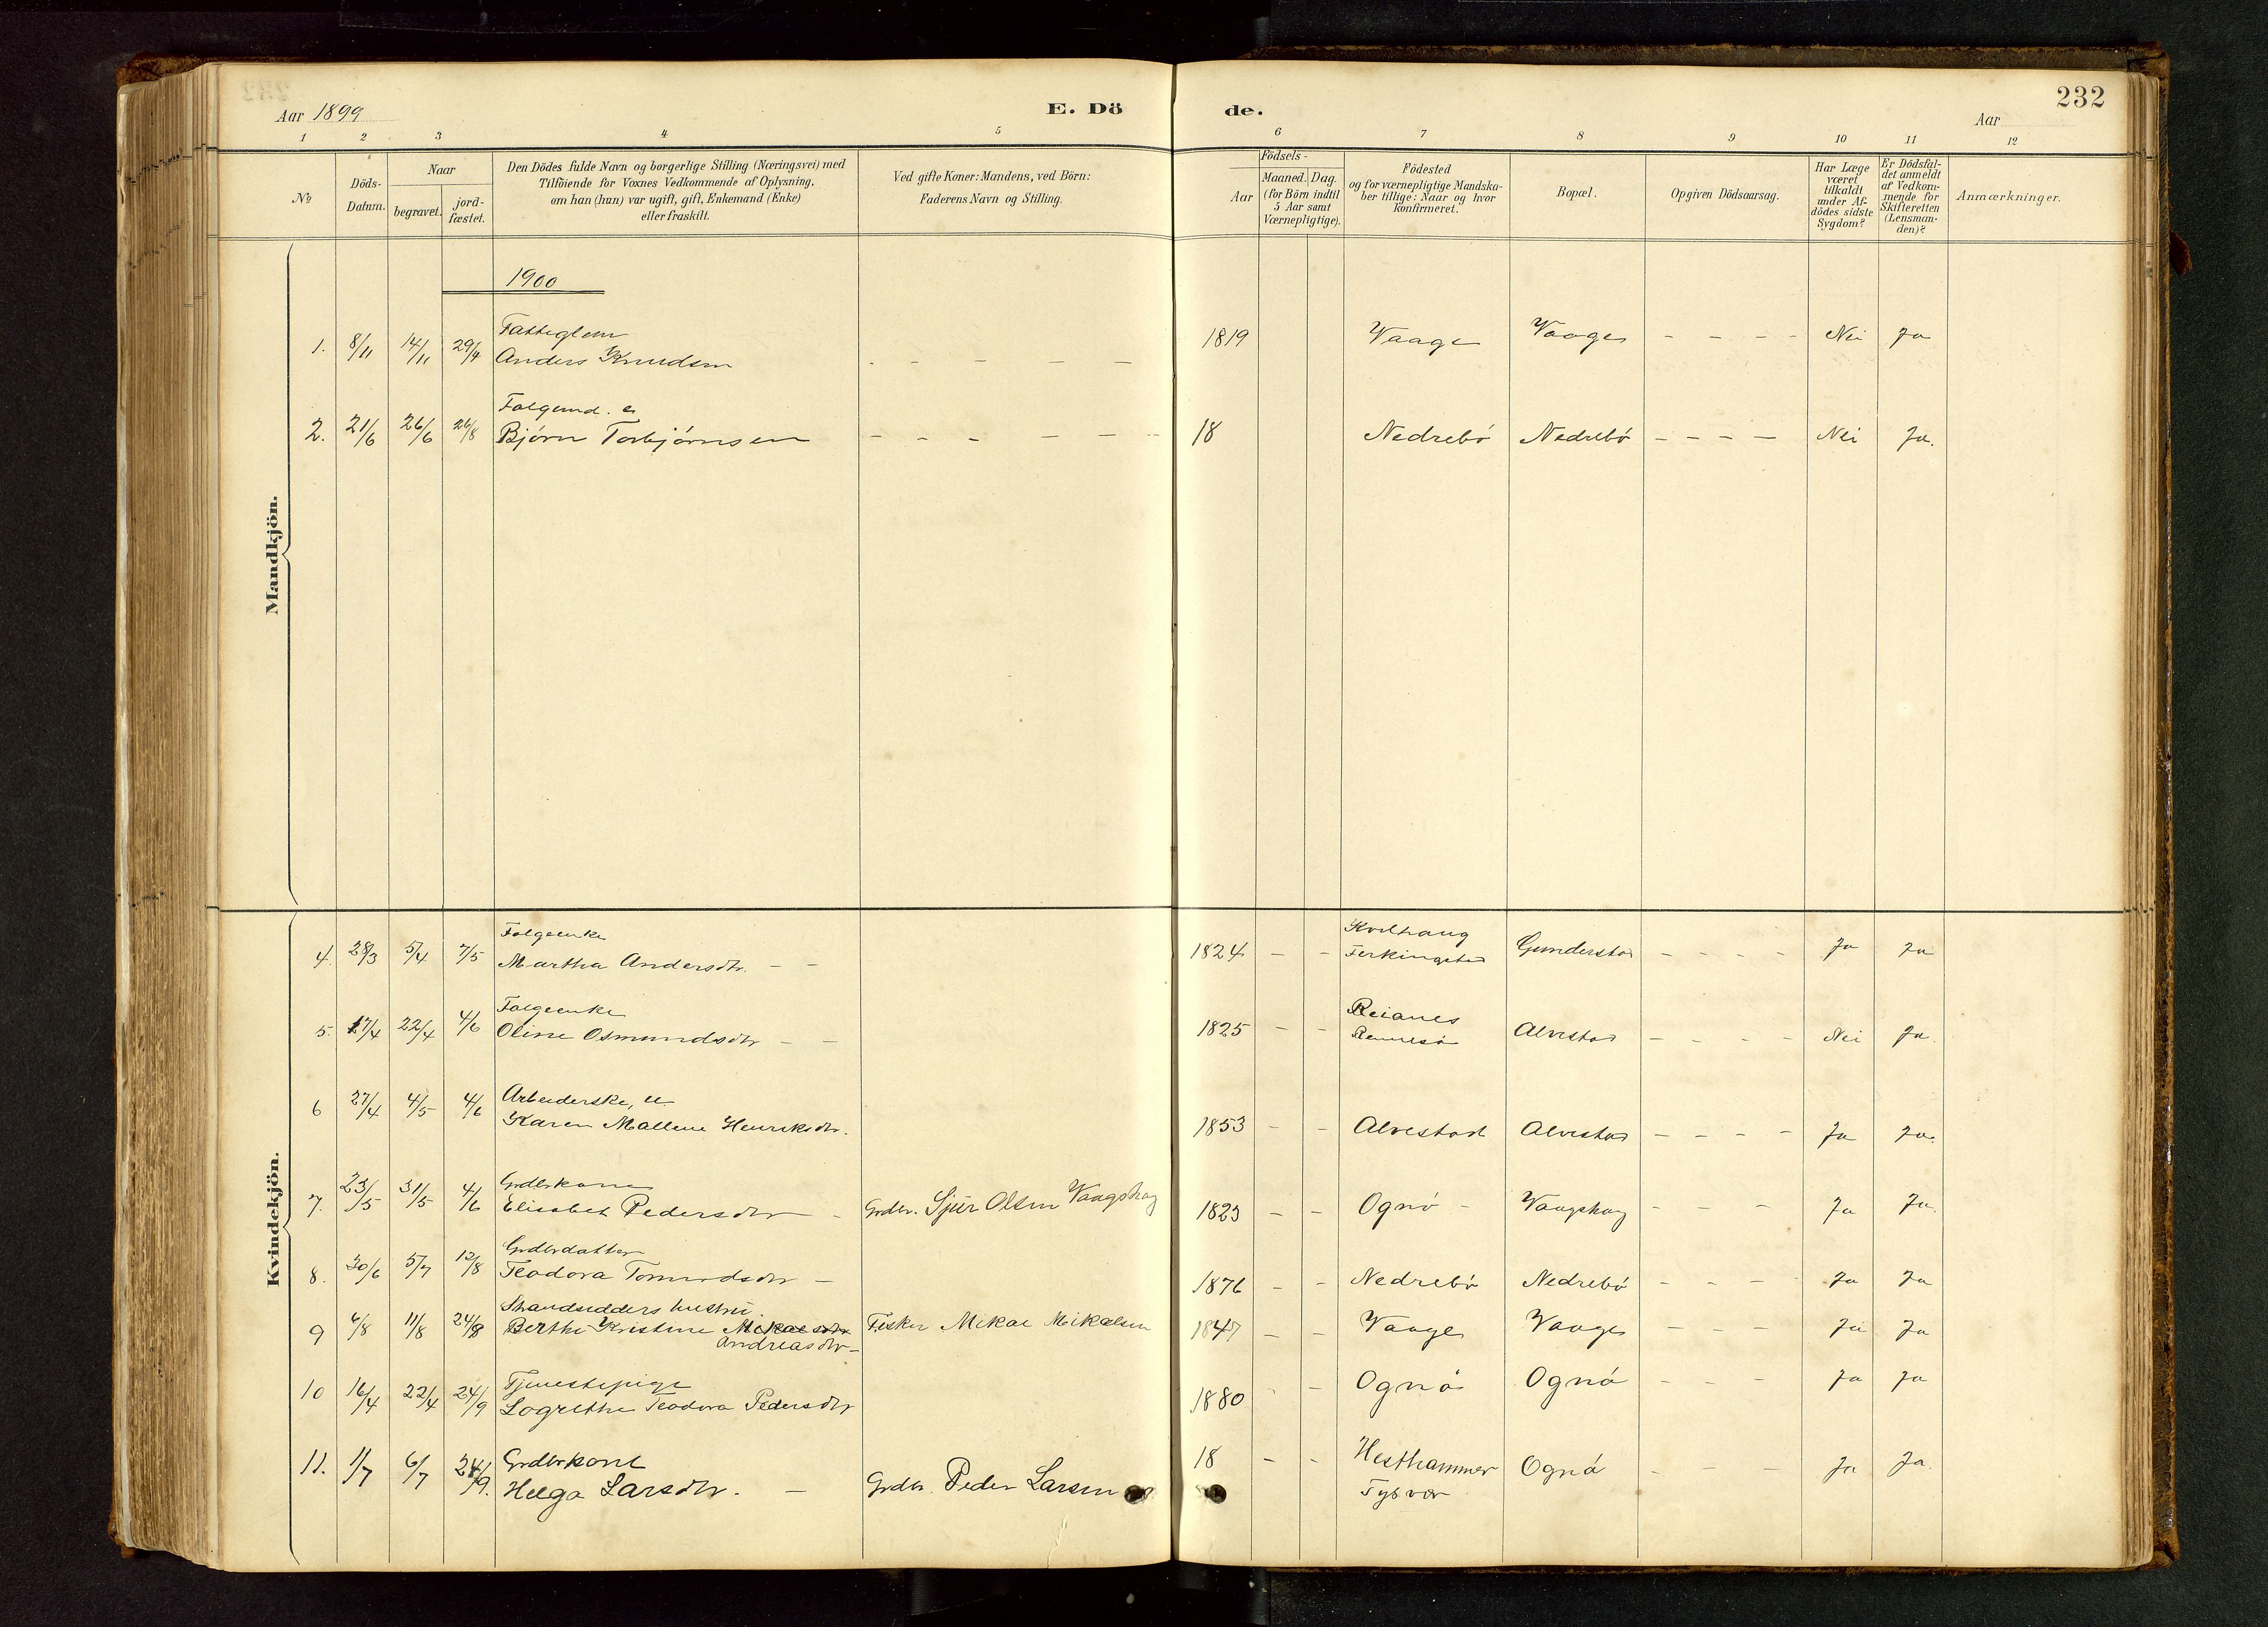 232
Aar 1899
E. Döde.
Aar
1 2 3 4 5 6 7 8 9 10 11 12
№
Döds-Datum.
Naar
begravet.
jord-fæstet.
Den Dödes fulde Navn og borgerlige Stilling (Næringsvei) med
Tilföiende for Voxnes Vedkommende af Oplysning,
om han (hun) var ugift, gift, Enkemand (Enke)
eller fraskilt.
Ved gifte Koner: Mandens, ved Börn:
Faderens Navn og Stilling.
Födsels-
Aar
Maaned. Dag.
(for Börn indtil
5 Aar samt
Værnepligtige).
Födested
og for værnepligtige Mandska-
ber tillige: Naar og hvor
konfirmeret.
Bopæl.
Opgiven Dödsaarsag.
Har Læge
været
tilkaldt
under Af-
dödes sidste
Sygdom?
Er Dödsfal-
det anmeldt
af Vedkom-
mende for
Skifteretten
(Lensman-
den)?
Anmærkninger.
Mandkjön.
1900
Fattiglem
1. 8/11 14/11 29/4 Anders Knudsen - - - - - 1819 Vaage Vaage - - - - Nei Ja
2. 21/6 26/6 26/8 Bjørn Torbjørnsen - - - - - 18 Nedrebö Nedrebö - - - - Nei Ja.
Kvindekjön.
Folgeenke
4. 28/3 5/4 7/5 Martha Andersdtr. - - 1824 - - Kvilhaug Ferkingstad Gunderstad - - - - Ja Ja
Folgeenke
5. 17/4 22/4 4/6 Oline Osmundsdtr - - 1825 - - Reianes Rennesö Alvestad - - - - Nei Ja.
Arbeiderske, u.
6 27/4 4/5 4/6 Karen Mallene Henriksdtr. 1853 - - Alvestad Alvestad - - - - Ja Ja.
Grdbrkone
7. 23/5 31/5 4/6 Elisabet Pedersdtr - Grdbr. Sjur Olsen Vaagshaug 1823 - - Ognö - Vaagshaug - - - Ja Ja.
Grdbrdatter
8. 30/6 5/7 12/8 Teodora Tormodsdtr - 1876 - - Nedrebö Nedrebö - - - Ja Ja
Strandsidders hustru.
9 6/8 11/8 24/9 Berthe Kristine Mikaelsdtr Fisker Mikal Mikalsen 1847 - - Vaage Vaage - - - Ja Ja
Andreasdtr -
Tjenestepige
10 16/4 22/4 24/9 Logrethe Teodora Pedersdtr 1880 - - Ognö Ognö - - - Ja Ja
Grdbrkone
11. 1/7 6/7 24/9. Helga Larsdtr. - Grdbr. Peder Larsen 18 - - Hesthammer Tysvær Ognö - - - Ja Ja.